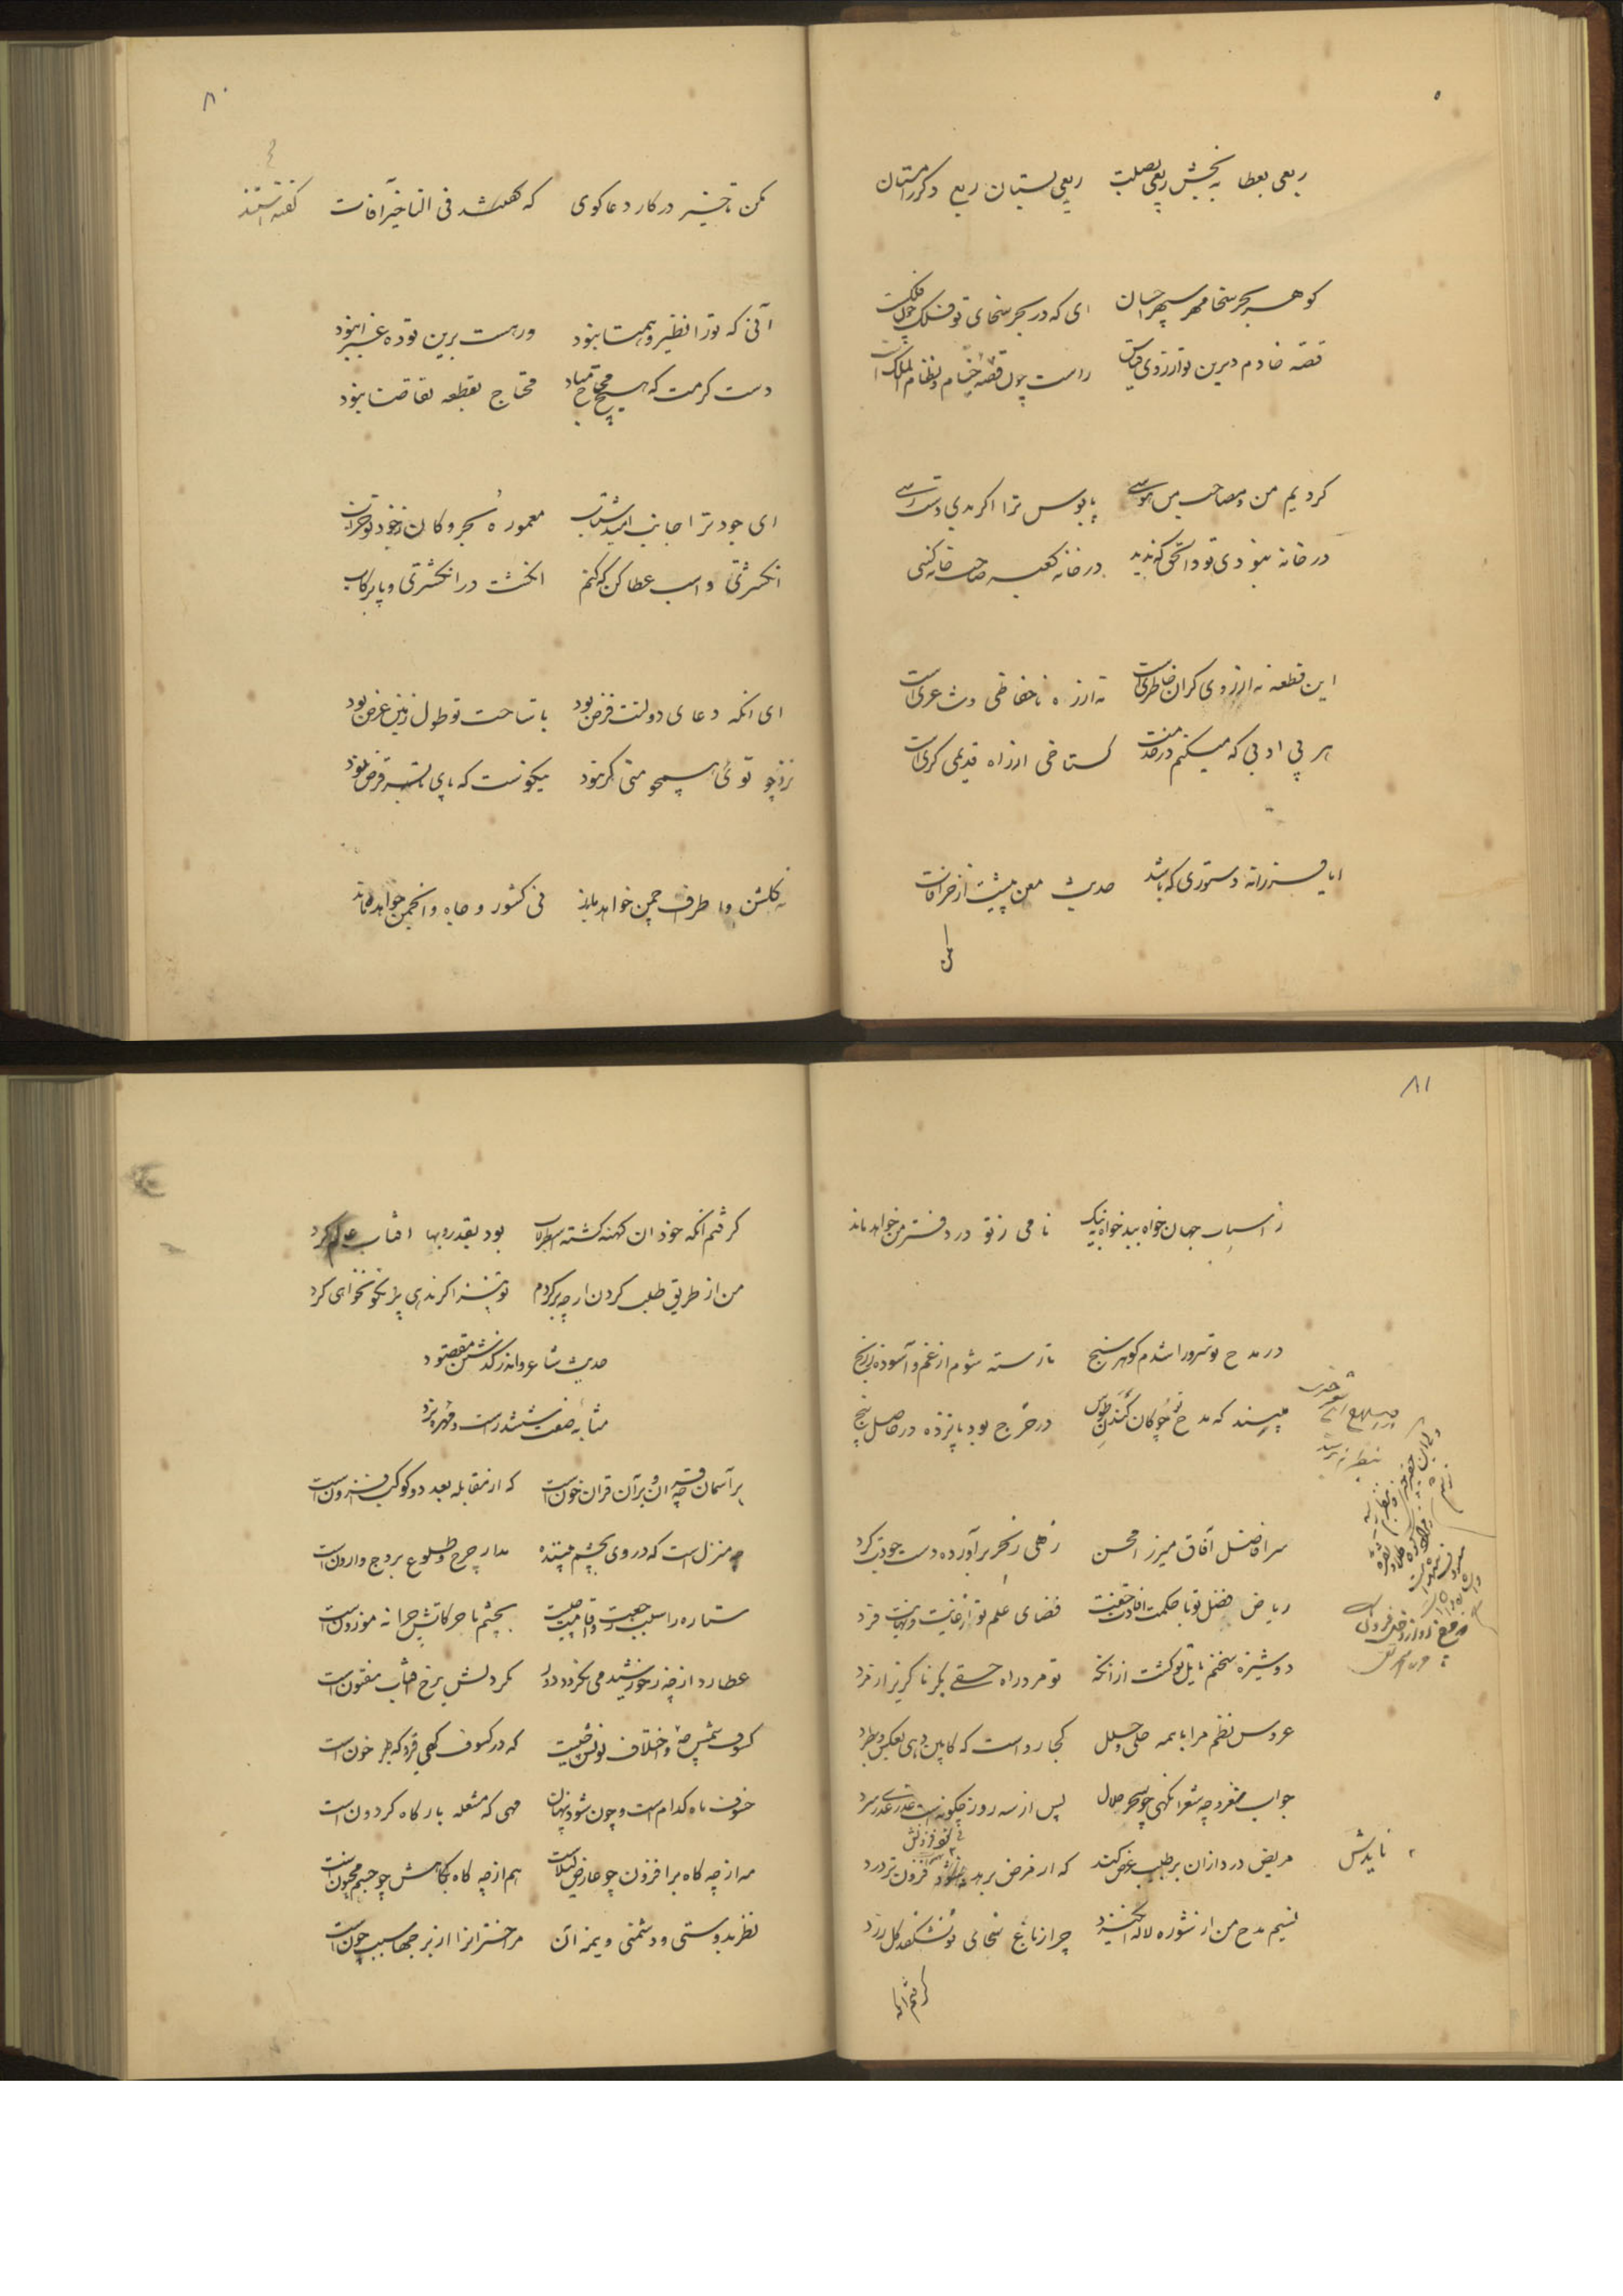 ربعی بعطا به بخش ربعی بصلت ربعی بستان ربع دکر را بستان
کوهر بحر سخا مهر سپهر احسان ای که در بحر سخای تو فلک چون فلکست
قصه خادم دیرین تو از روی قیاس راست چون قصه خیام و نظام الملک است
کردیم من و مصاحب من هوسی پابوس ترا اکر بدی دست رسی
در خانه نبودی تو و الحق که ندید در خانه کعبه صاحب خانه کسی
این قطعه نه از روی کران خاطری است نه از ره ناحفاظی و شاعری است
هر بی ادبی که میکنم در خدمت کستاخی از راه قدیمی کری است
ایا فرزانه دستوری که باشد حدیث معن پیشت از خرافات
مکن
۸۰
مکن تاخیر در کار دعا کوی که کفتند فی التاخیر آفات
کفته استند
آنی که تو را نظیر و همتا نبود ورهست برین توده غبرا نبود
دست کرمت که هیچ محتاج مباد محتاج بقطعه تقاضا نبود
ای جود ترا جانب امید شتاب معموره بحر و کان ز جود تو خراب
انکشتری و اسب عطا کن که کنم انکشت در انکشتری و پا برکاب
ای انکه دعای دولتت فرض بود با ساحت تو طول زمین عرض بود
نزد چو توئی همچو منی کر نبود نیکو نیست که پای بسته قرض بود
نه کلشن و اطراف چمن خواهد ماند نی کشور و جاه و انجمن خواهد ماند
۸۱
ز اسباب جهان خواه بد خواهی نیک نامی ز تو در دفتر من خواهد ماند
در مدح تو سرورا شدم کوهر سنج تا رسته شوم از غم و آسوده ز رنج
مپسند که مدح تو چو کان کندن طوس در خرج بود پانزده در حاصل پنج
سر افاضل آفاق میرزا محسن زهی ز بحر برآورده دست جودت کرد
ریاض فضل تو با حکمت افادت جفت فضای علم تو از غایت و نهایت فرد
دوشیزه سخنم مایل تو کشت از انکه تو مرد راه حقی بکر ناکزیر از مرد
عروس نظم مرا با همه حلی و حلل کجا رواست که کابین دهی بعکس و بطرد
جواب مفرد چه شعر انکهی چو سحر حلال پس از سه روز چکونه است
مریض درد از ان بر طبیب عرض کند که از مرض برهد فزون تر درد
نایدش
نسیم مدح من از شوره لاله انکیزد چرا ز باغ سخای تو نشکفد کل زرد
کرفتم انکه
کرفتم انکه خود ان کهنه کشته اسطرلاب بود بقدر و بها افتاب عالم کرد
من از طریق طلب کردن ار چه بر کردم تو نیز اکر ندهی پر نکو نخواهی کرد
حدیث شاعر و اندر کذشتن مقصود
مشابه صفت ششدر است و مهره نرد
بر آسمان چه قران و بر آن قران خونست که از مقابله بعد دو کوکب فزونست
چه منزل است که در وی بچشم بیننده مدار چرخ و طلوع بروج وارونست
ستاره را سلب رجعت و اقامت چیست بچشم ما حرکاتش چرا نه موزونست
عطارد از چه ز خورشید می نکردد دور مکر دلش برخ افتاب مفتونست
کسوف شمس چه و اختلاف لونش چیست که در کسوف کهی قیر و که طبر خونست
خسوف ماه کدام است و چون شود پنهان مهی که مشعله بارکاه کردونست
مه از چه کاه بر افزون چو عارض لیلاست هم از چه کاه بکاهش چو جسم مجنونست
نظر بدوستی و دشمنی و نیمه آن مر اختران را از برجها سبب چونست